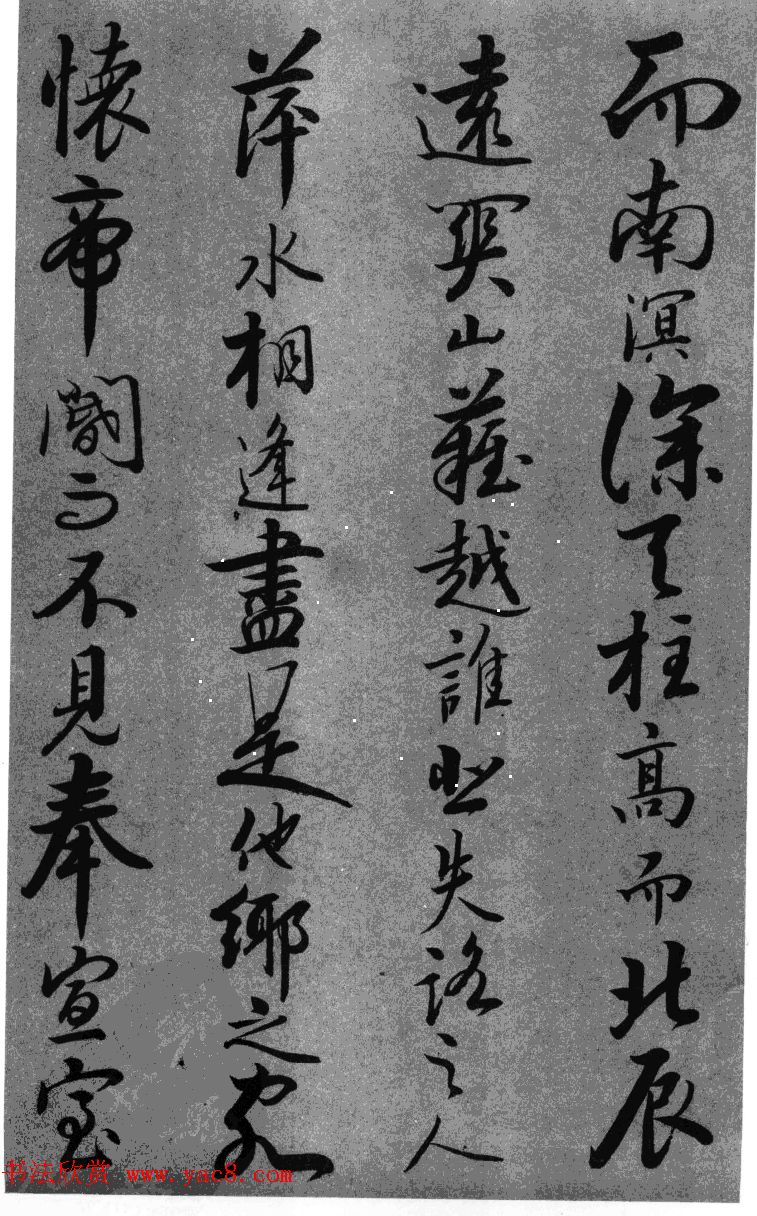 而南溟深天柱高而北辰
遠關山難越誰悲失路之人
萍水相逢盡是他鄉之客
懷帝閽而不見奉宣室
书法欣赏 www.yac8.com